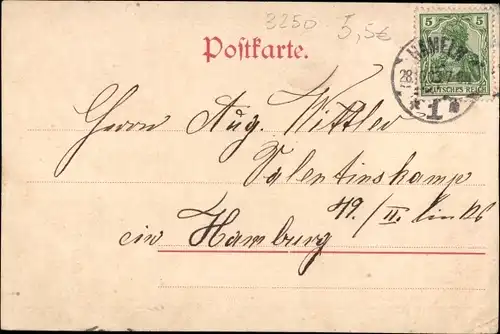 3250 I 5,5€
Postkarte.
5 5
DEUTSCHES REICH
HAMELN
28.
* 1 *
Herrn Aug. Wittler
Valentinskamp
49./II. links
in Hamburg